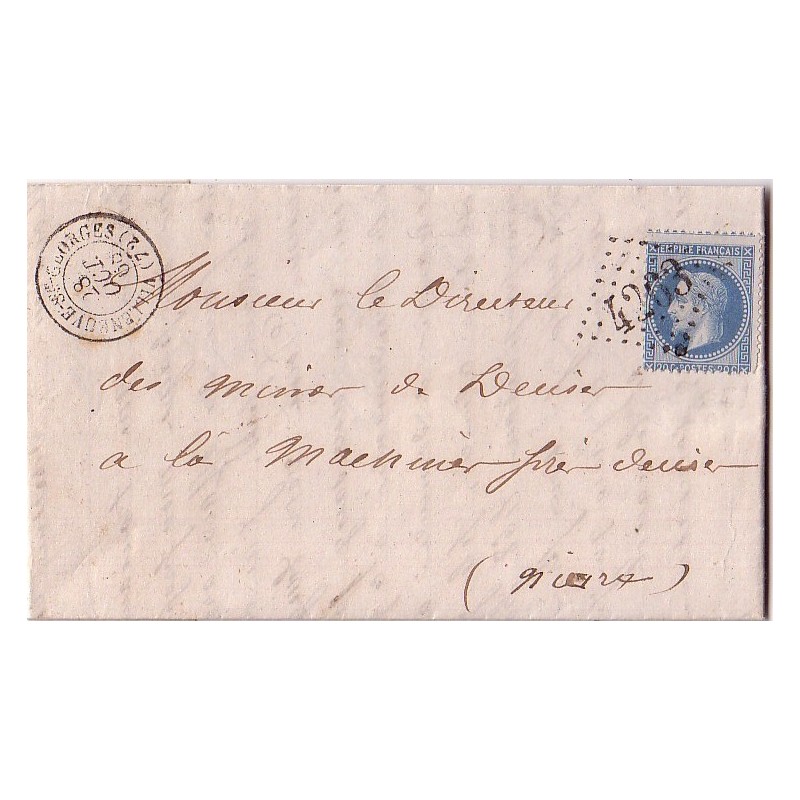 VILLENEUVE-ST-GEORGES (72)
28
OCT
68
EMPIRE FRANÇAIS
20 C POSTES 20 C
Monsieur le Directeur
des mines de Decise
a la Machine près decise
(nievre)